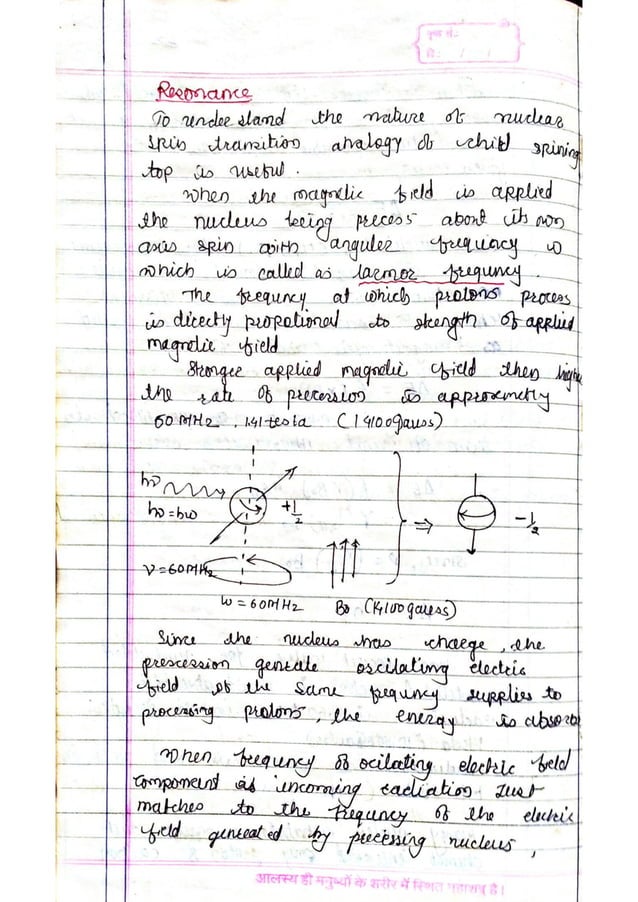 पृष्ठ सं.:
दि.: / /
Resonance
To understand the nature of nuclear
spin transition analogy of child spining
top is useful.
When the magnetic field is applied
the nucleus being precess about its own
axis spin with anguler frequncy ω
which is called as larmor frequncy.
The frequncy at which protons process
is dicectly propotional to stength of applied
magnetic field
Stronger applied magnetic field then highe
the rate of precession is approxmetly
60 MHz. 1.41 tesla (14100 gauss)
hν
hν = hω
+1/2
⇒
-1/2
ν = 60 MHz
ω = 60 MHz B0 (14100 gauss)
Since the nucleus has charge, the
prescession geneate oscilating electric
field of the same frequncy supplies to
processing protons, the energy is absorbe
When frequncy of ocilating electric field
component of incoming radiation Just
matches to the frequncy of the electric
field geneated by precessing nucleus,
आलस्य ही मनुष्यों के शरीर में स्थित महाशत्रु है।